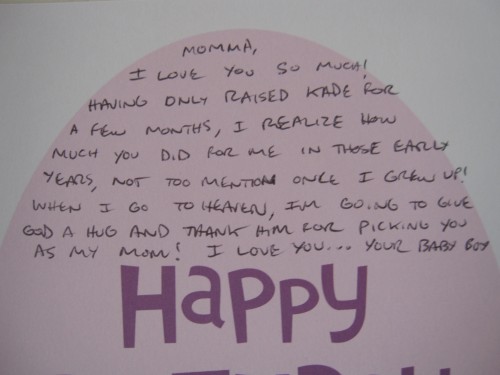 MOMMA,
I LOVE YOU SO MUCH!
HAVING ONLY RAISED KADE FOR
A FEW MONTHS, I REALIZE HOW
MUCH YOU DID FOR ME IN THOSE EARLY
YEARS, NOT TOO MENTION ONCE I GREW UP!
WHEN I GO TO HEAVEN, I'M GOING TO GIVE
GOD A HUG AND THANK HIM FOR PICKING YOU
AS MY MOM! I LOVE YOU... YOUR BABY BOY
HAPPY